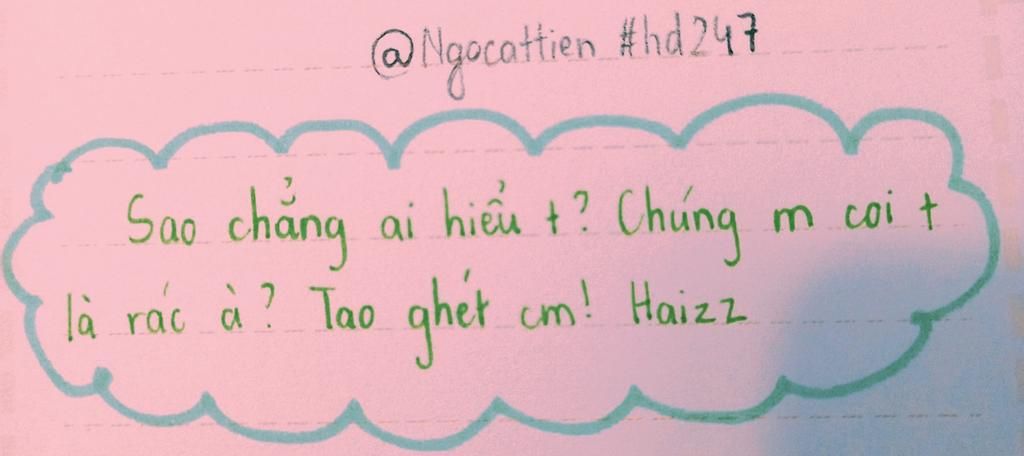 @Ngocattien #hd247
Sao chẳng ai hiểu t? Chúng m coi t
là rác à? Tao ghét cm! Haizz